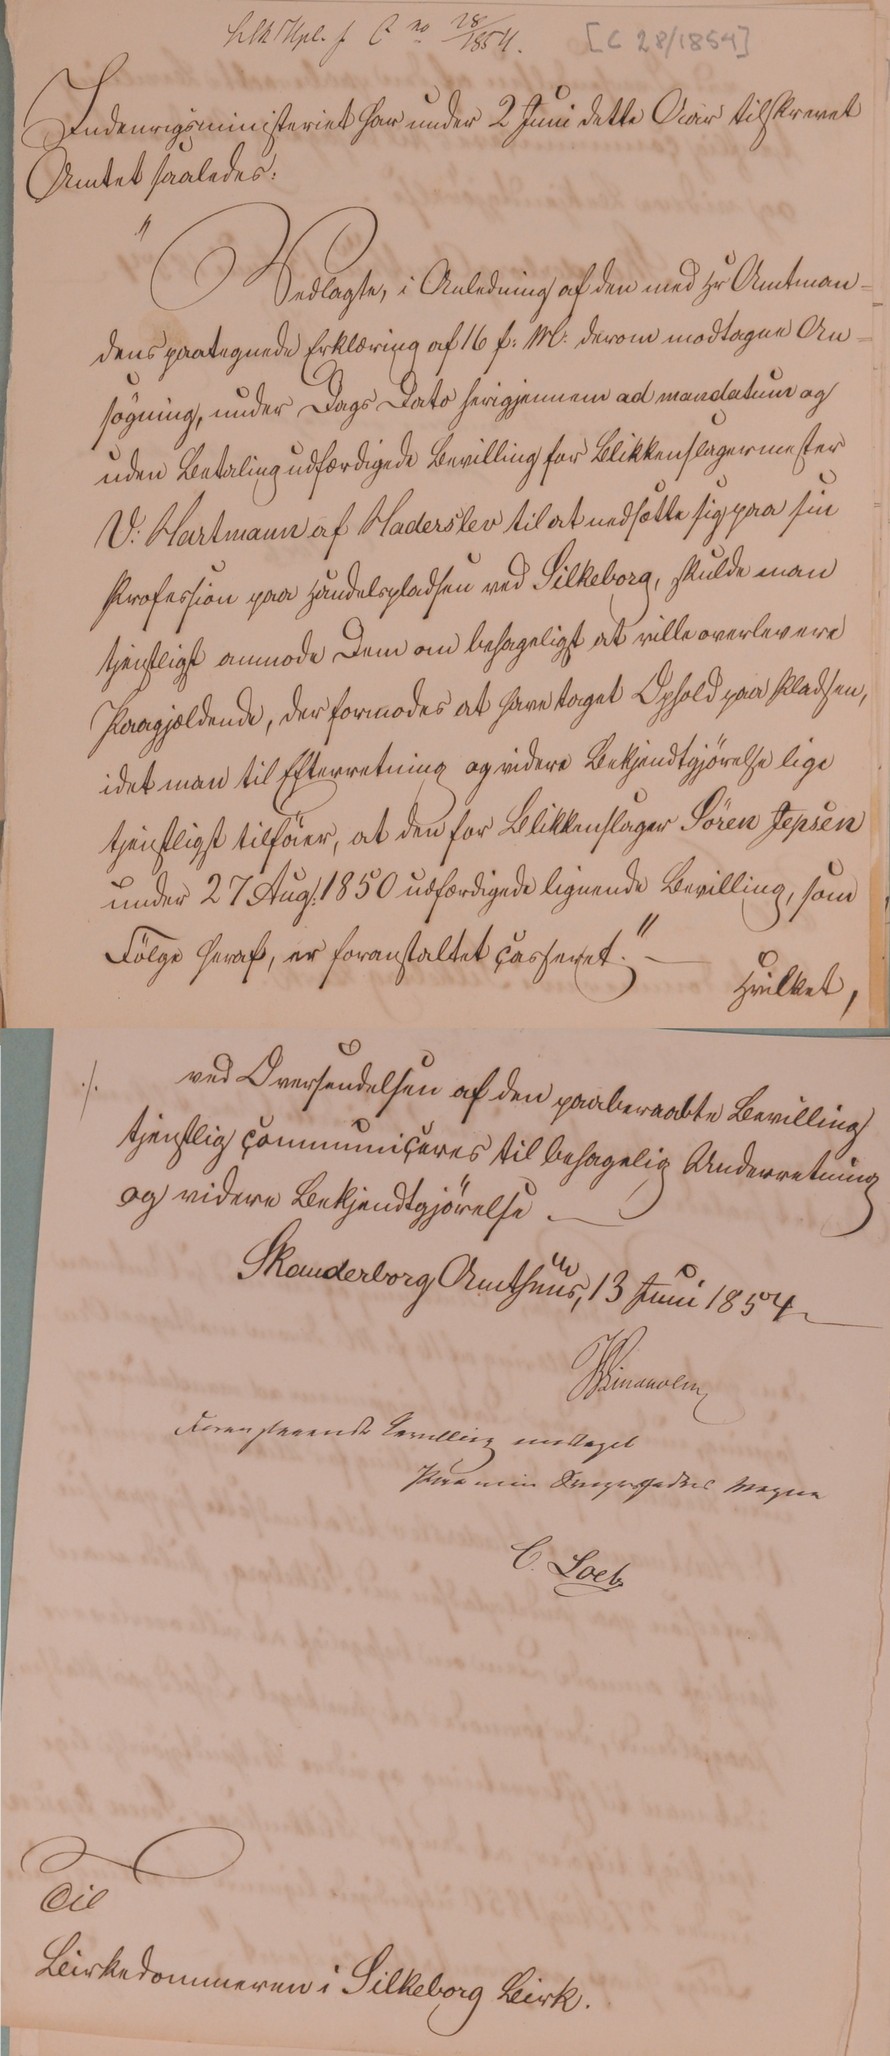 C no 28/1854. [C 28/1854]
Indenrigsministeriet har under 2 Juni dette Aar tilskrevet
Amtet saaledes:
"Vedlagte, i Anledning af den med Hr Amtman=
dens paategnede Erklæring af 16 f: M: derom modtagne An=
søgning, under Dags Dato herigjennem ad mandatum og
uden Betaling udfærdigede Bevilling for Blikkenslagermester
V: Hartmann af Haderslev til at nedsætte sig paa sin
Profession paa Handelspladsen ved Silkeborg, skulde man
tjenstligst anmode Dem om behageligst at ville overlevere
Paagjældende, der formodes at have taget Ophold paa Pladsen,
idet man til Efterretning og videre Bekjendtgjørelse lige
tjenstligst tilføier, at den for Blikkenslager Sören Jepsen
under 27 Aug: 1850 udfærdigede lignende Bevilling, som
Følge heraf, er foranstaltet casseret." —
Hvilket,
./. ved Oversendelsen af den paaberaabte Bevilling
tjenstlig communiceres til behagelig Underretning
og videre Bekjendtgjørelse. —
Skanderborg Amthuus, 13 Juni 1854
Foranstaaende Bevilling modtaget
Paa min Svigerfaders Vegne
C. Loeb
Til
Birkedommeren i Silkeborg Birk.